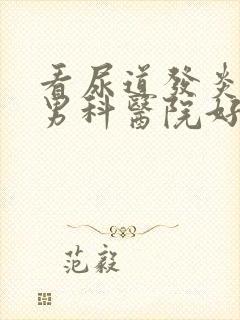 看尿道發炎
男科醫院好
范毅